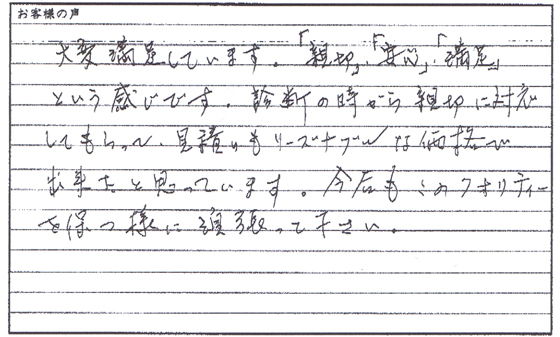 お客様の声
大変満足しています。「親切」・「安心」・「満足」
という感じです。診断の時から親切に対応
してもらって、見積りもリーズナブルな価格で
出来たと思っています。今后もこのクオリティー
を保つ様に頑張って下さい。